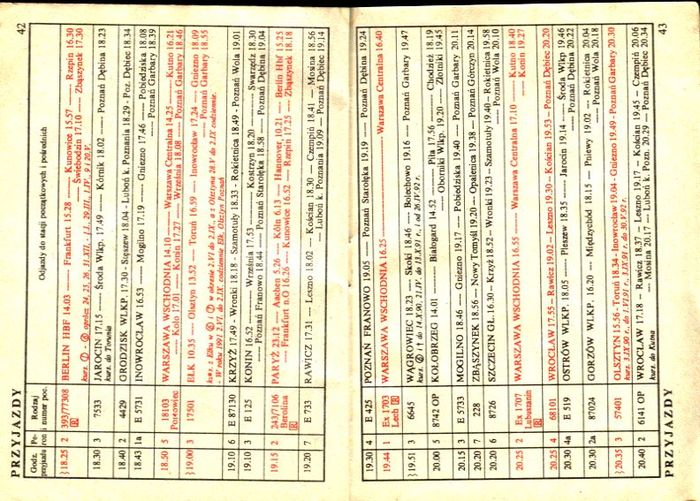 42
PRZYJAZDY
Godz. przyjazdu
Pe-ron
Rodzaj i numer poc.
Odjazdy do stacji początkowych i pośrednich
18.25 2 393/77308 BERLIN HBF 14.03 Frankfurt 15.28 Kunowice 15.57 Rzepin 16.30
Świebodzin 17.10 Zbąszynek 17.30
18.30 3 7533 JAROCIN 17.15 Środa Wlkp. 17.49 Kórnik 18.02 Poznań Dębina 18.23
kurs. do Torunia
18.40 2 4429 GRODZISK WLKP. 17.30 - Stęszew 18.04 - Luboń k. Poznania 18.29 - Poz. Dębina 18.34
18.43 1a E 5731 INOWROCŁAW 16.53 Mogilno 17.19 Gniezno 17.46 Pobiedziska 18.08
Poznań Garbary 18.39
18.50 5 18103 WARSZAWA WSCHODNIA 14.10 Warszawa Centralna 14.25 Kutno 16.21
Koło 17.01 Konin 17.27 Września 18.08 Poznań Garbary 18.46
19.00 3 17501 EŁK 10.35 Olsztyn 13.52 Toruń 16.59 Inowrocław 17.24 Gniezno 18.09
Poznań Garbary 18.55
19.10 6 E 87130 KRZYŻ 17.49 - Wronki 18.18 - Szamotuły 18.33 - Rokietnica 18.49 - Poznań Wola 19.01
19.10 3 E 125 KONIN 16.52 Września 17.53 Kostrzyn 18.20 Swarzędz 18.30
Poznań Franowo 18.44 Poznań Starołęka 18.58 Poznań Dębina 19.04
19.15 2 243/7106 Berolina PARYŻ 23.12 Aachen 5.26 Köln 6.13 Hannover 10.21 Berlin Hbf 15.25
Frankfurt n.O 16.26 Kunowice 16.52 Rzepin 17.25 Zbąszynek 18.18
19.20 7 E 733 RAWICZ 17.31 Leszno 18.02 Kościan 18.30 Czempiń 18.41 Mosina 18.56
Luboń k. Poznania 19.09 Poznań Dębina 19.14
43
PRZYJAZDY
19.30 4 E 425 POZNAŃ FRANOWO 19.05 Poznań Starołęka 19.19 Poznań Dębina 19.24
19.44 1 Ex 1703 Lech WARSZAWA WSCHODNIA 16.25 Warszawa Centralna 16.40
19.51 3 6645 WĄGROWIEC 18.23 Skoki 18.46 Bolechowo 19.16 Poznań Garbary 19.47
20.00 5 8742 OP KOŁOBRZEG 14.01 Białogard 14.52 Piła 17.56 Chodzież 18.19
Oborniki Wlkp. 19.20 Złotniki 19.45
20.15 3 E 5733 MOGILNO 18.46 Gniezno 19.17 Pobiedziska 19.40 Poznań Garbary 20.11
20.20 7 228 ZBĄSZYNEK 18.56 Nowy Tomyśl 19.20 Opalenica 19.38 Poznań Górczyn 20.14
20.20 6 8726 SZCZECIN GŁ. 16.30 - Krzyż 18.52 - Wronki 19.23 - Szamotuły 19.40 - Rokietnica 19.58
Poznań Wola 20.10
20.25 2 Ex 1707 Lubuszanin WARSZAWA WSCHODNIA 16.55 Warszawa Centralna 17.10 Kutno 18.40
Konin 19.27
20.25 4 68101 WROCŁAW 17.55 - Rawicz 19.02 - Leszno 19.30 - Kościan 19.53 - Poznań Dębiec 20.20
20.30 4a E 519 OSTRÓW WLKP. 18.05 Pleszew 18.35 Jarocin 19.14 Środa Wlkp 19.46
Poznań Dębina 20.22
20.30 2a 87024 GORZÓW WLKP. 16.20 Międzychód 18.15 Pniewy 19.02 Rokietnica 20.04
Poznań Wola 20.18
20.35 3 57401 OLSZTYN 15.56 - Toruń 18.34 - Inowrocław 19.04 - Gniezno 19.49 - Poznań Garbary 20.30
20.40 2 6141 OP WROCŁAW 17.18 Rawicz 18.37 Leszno 19.17 Kościan 19.45 Czempiń 20.06
Mosina 20.17 Luboń k. Pozn. 20.29 Poznań Dębina 20.34
kurs. do Kutna